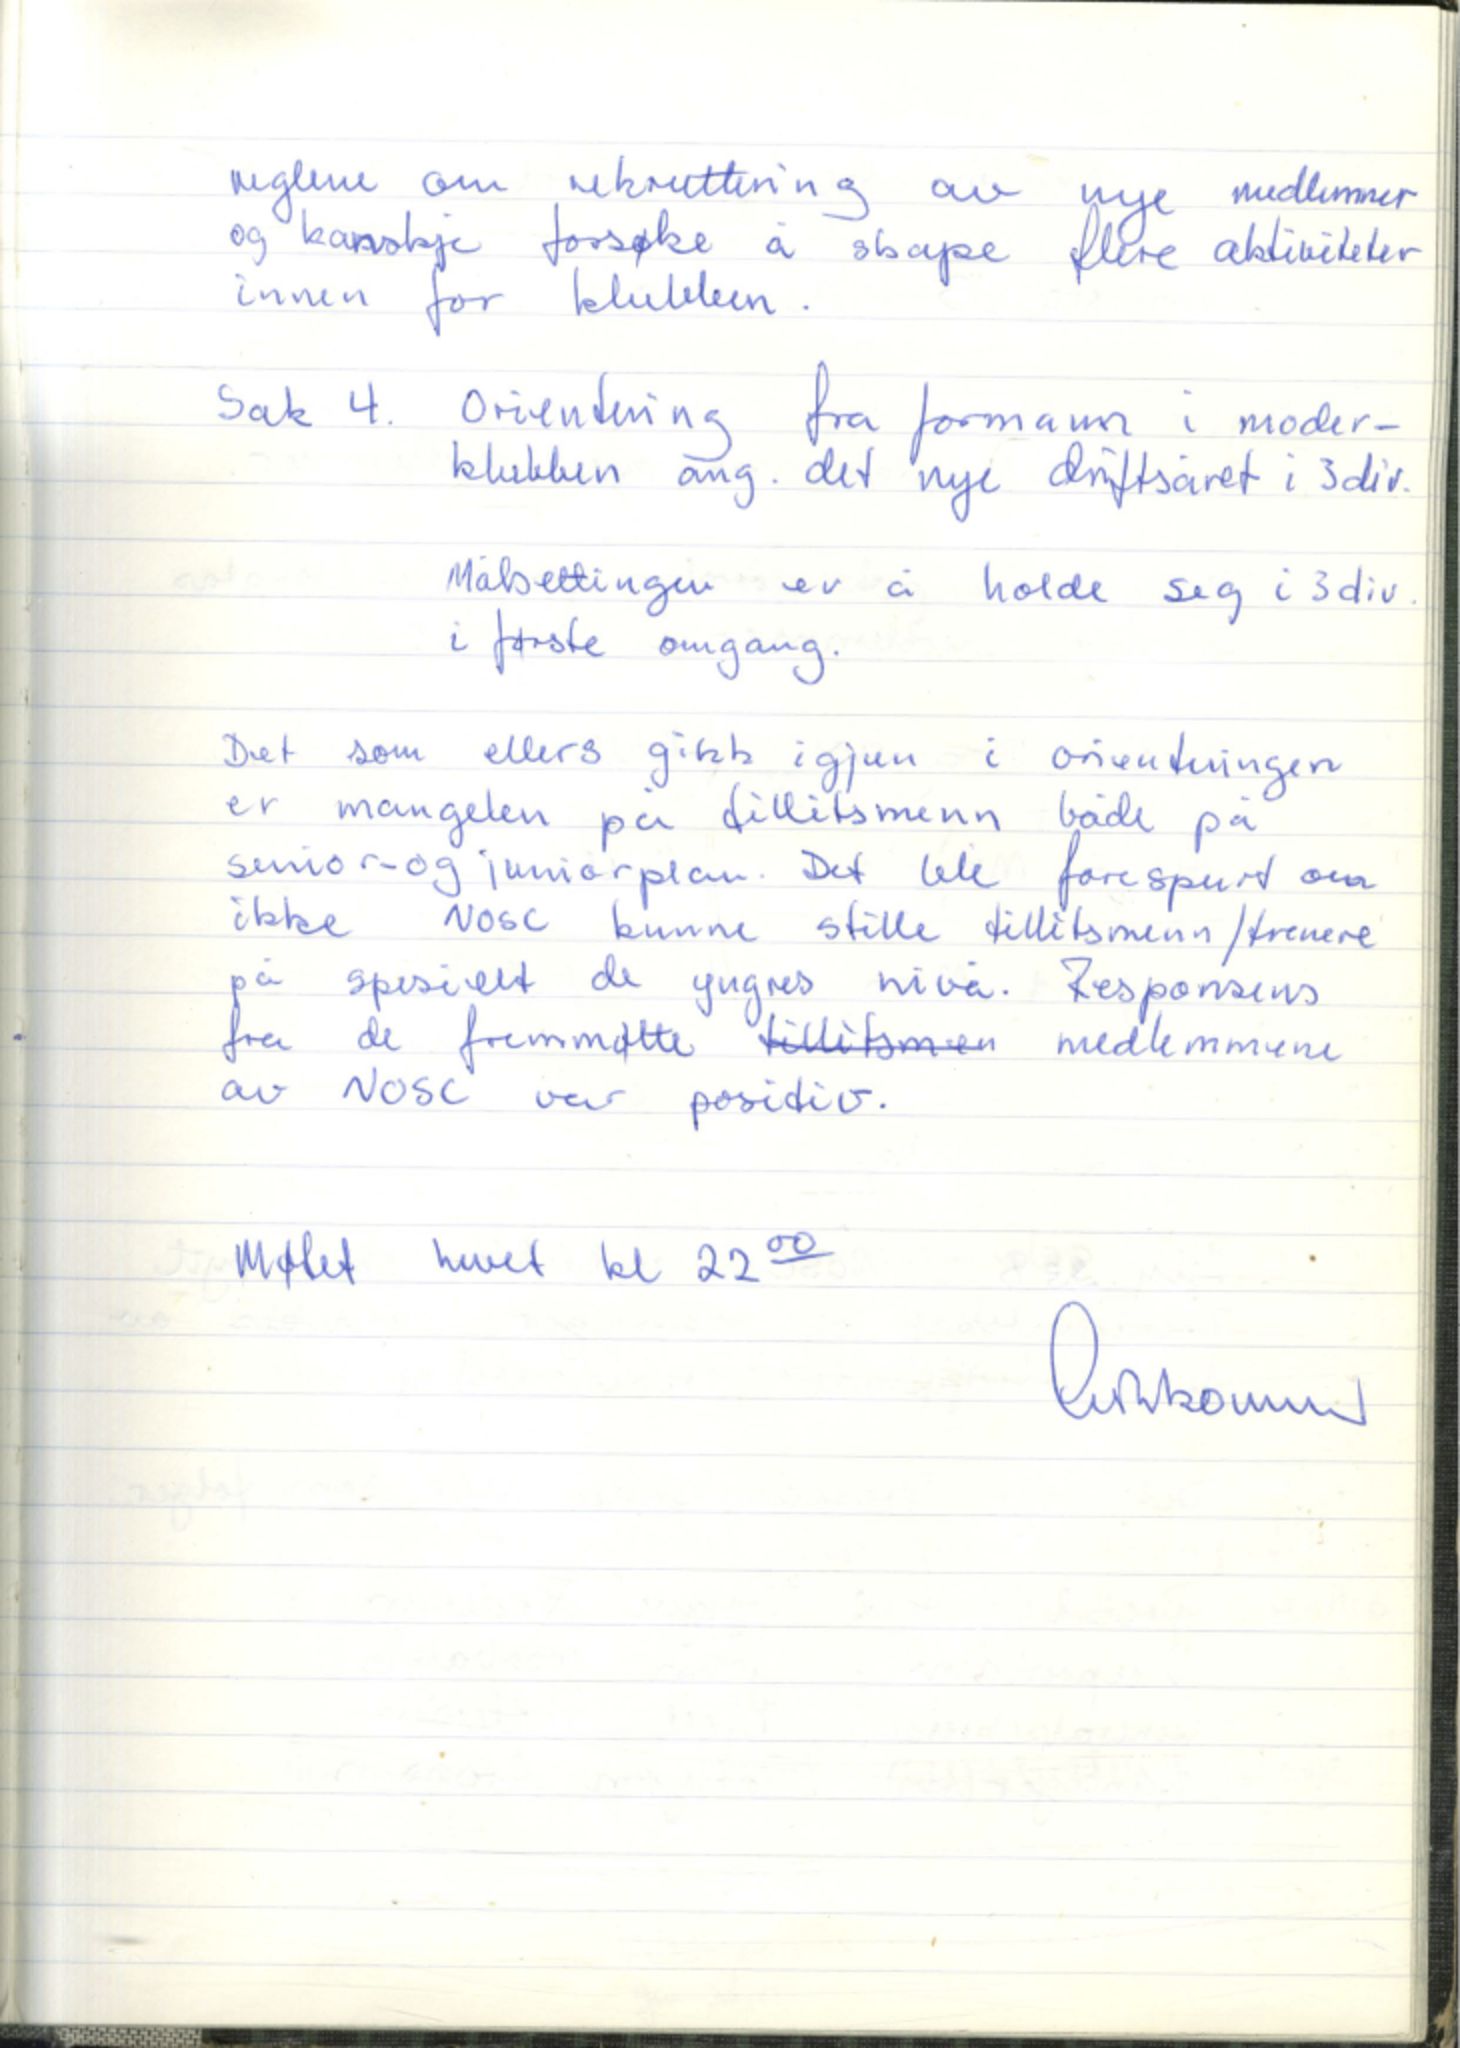 reglene om rekruttering av nye medlemmer
og kanskje forsøke å skape flere aktiviteter
innen for klubben.
Sak 4. Orientering fra formann i moder-
klubben ang. det nye driftsåret i 3 div.
Målsettingen er å holde seg i 3 div.
i første omgang.
Det som ellers gikk igjen i orienteringen
er mangelen på tillitsmenn både på
senior- og juniorplan. Det ble forespurt om
ikke NOSC kunne stille tillitsmenn/trenere
på spesielt de yngres nivå. Responsens
fra de fremmøtte tillitsmen medlemmene
av NOSC var positiv.
Møtet hevet kl 22 00